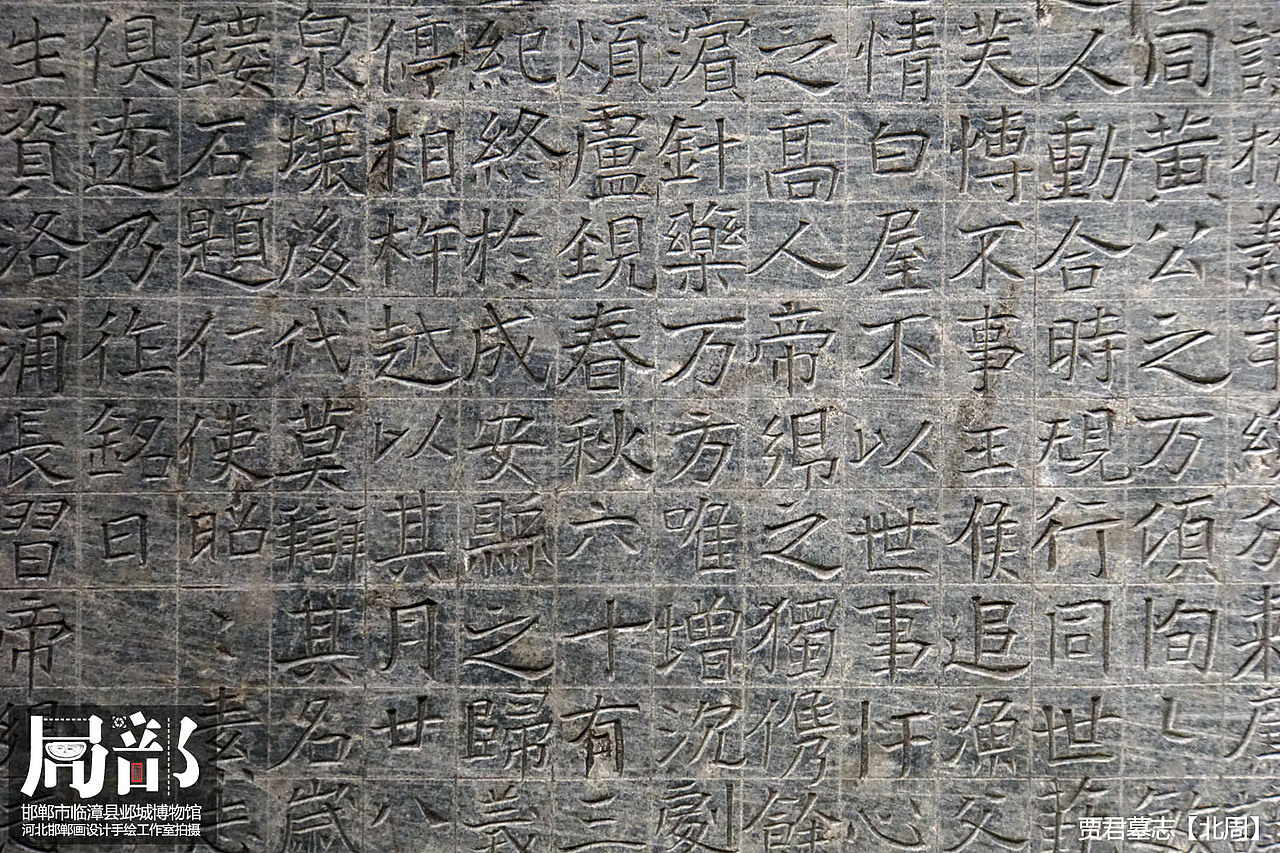 同黃公之万頃恂〻
人動合時規行同世
芙慱不事王侯追漁父
情白屋不以世事忓心
之高人帝鄉之獨儁餘
濵針藥万方唯增沉劇
煩盧鋧春秋六十有三
紀終於成安縣之歸義
停相杵越以其月廿八
泉壤後代莫辯其名歲
鏤石題仁使昭〻
俱遠乃作銘曰
生資洛浦長習帝
局部
邯郸市临漳县邺城博物馆
河北邯郸画设计手绘工作室拍摄
贾君墓志【北周】